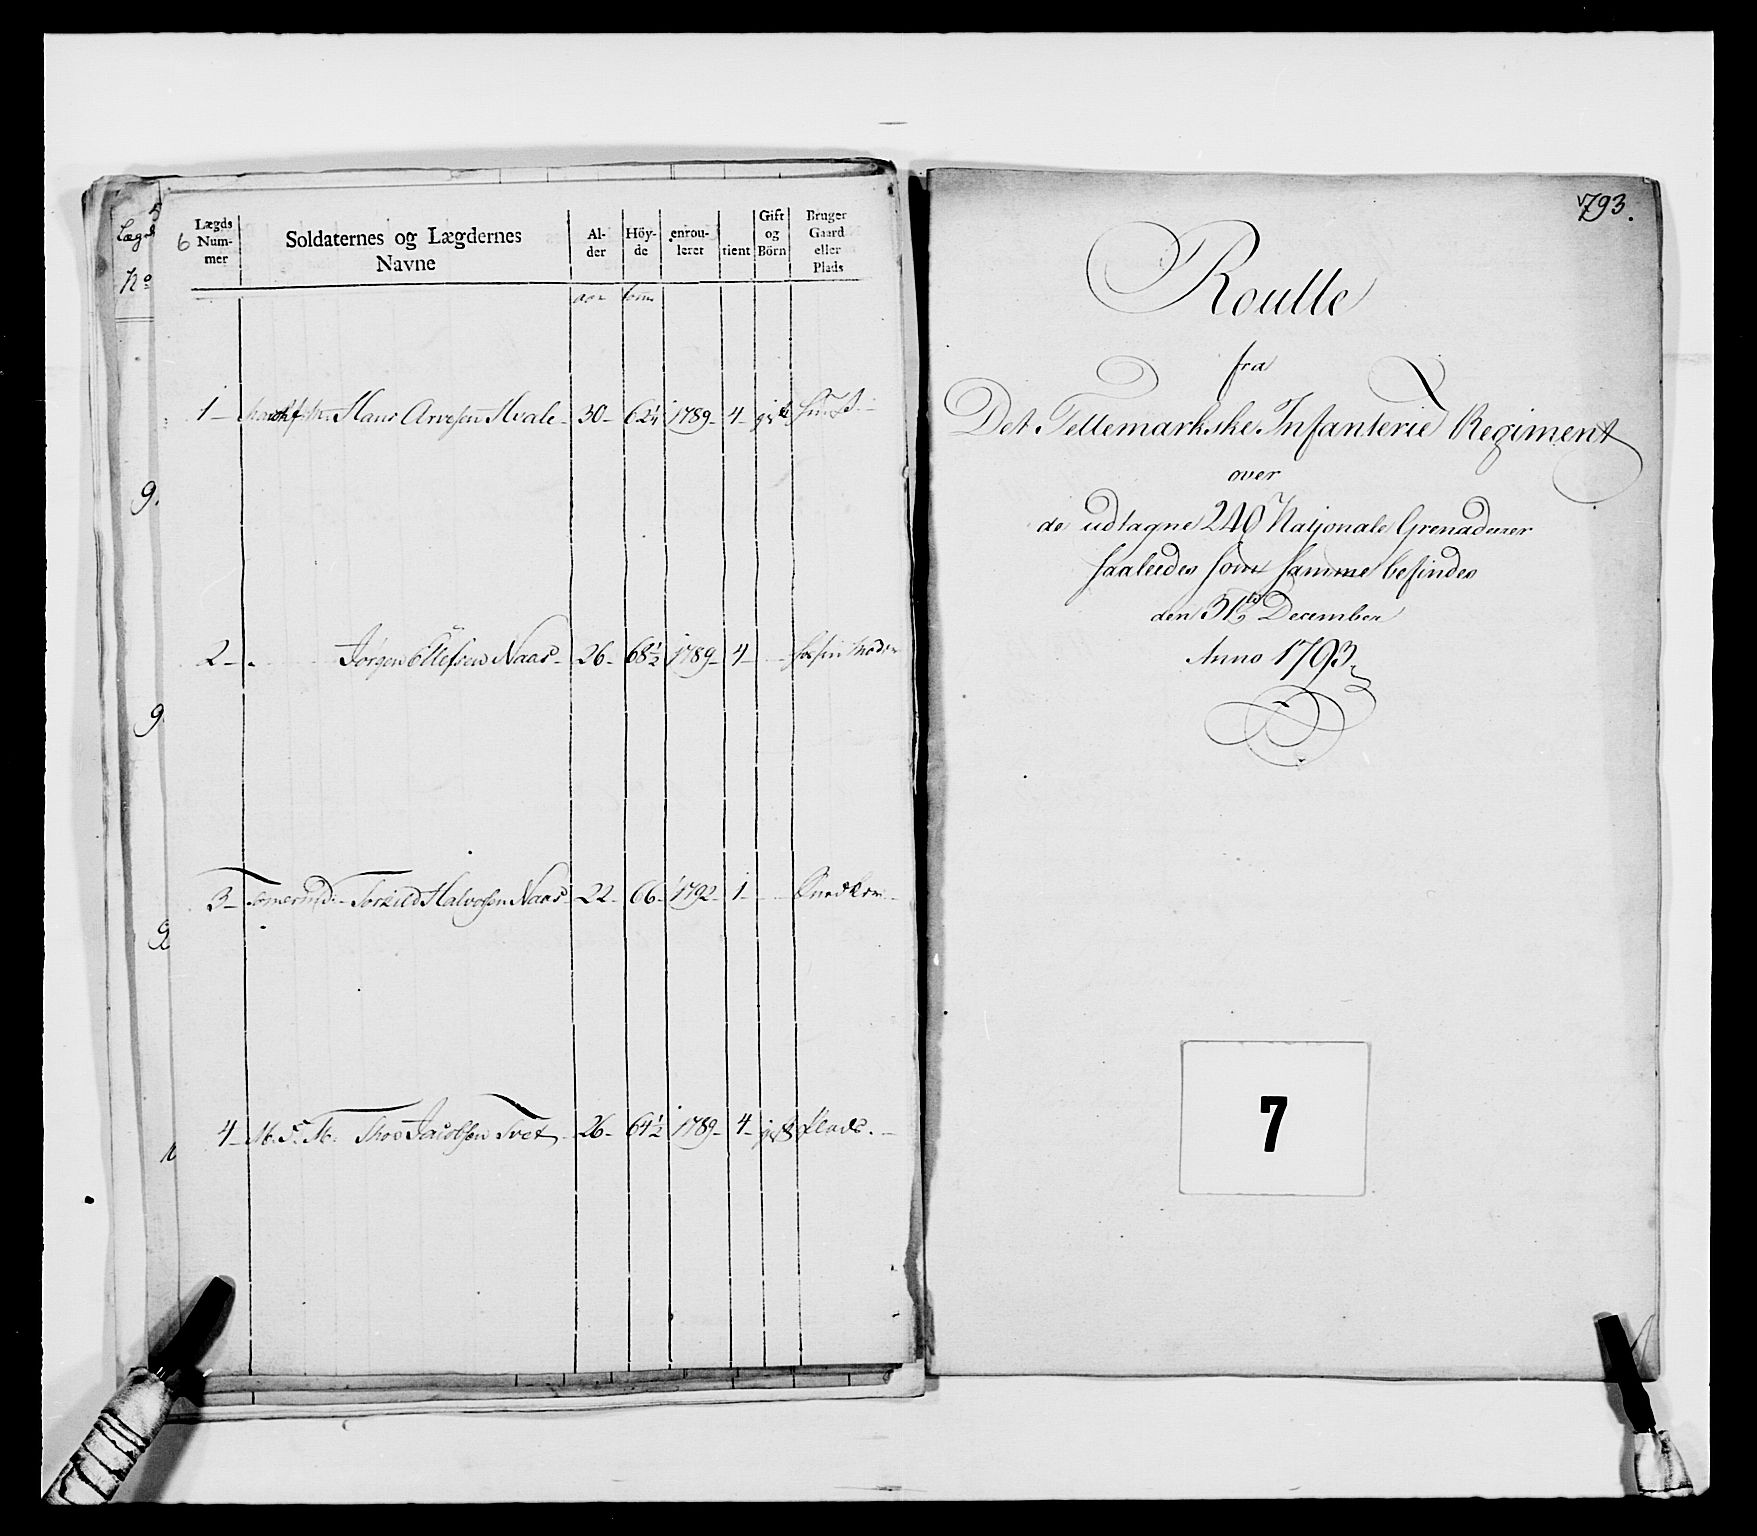 5
Lægd
No
6
Lægds Num-mer
Soldaternes og Lægdernes Navne
Al-der
Höy-de
enrou-leret
tient
Gift og Börn
Bruger Gaard eller Plads
aar tom
1 - Hans Arvesen Hvale - 30 - 62 1/4 1789 - 4 - gift
9.
2 - Jörgen Ellefsen Naas - 26 - 68 1/2 1789 - 4 -
9.
3 - Torkild Halvorsen Naas 22 - 66 - 1792 - 1 -
9
4 - Jacobsen Tvet - 26 - 64 1/2 1789 - 4 - gift Plads. -
793.
Roulle
fra
Det Tellemarkske Infanterie Regiment
over
de udtagne 240 Natjonale Grenaderer
saaleedes som samme befindes
den 31te December
Anno 1793
7